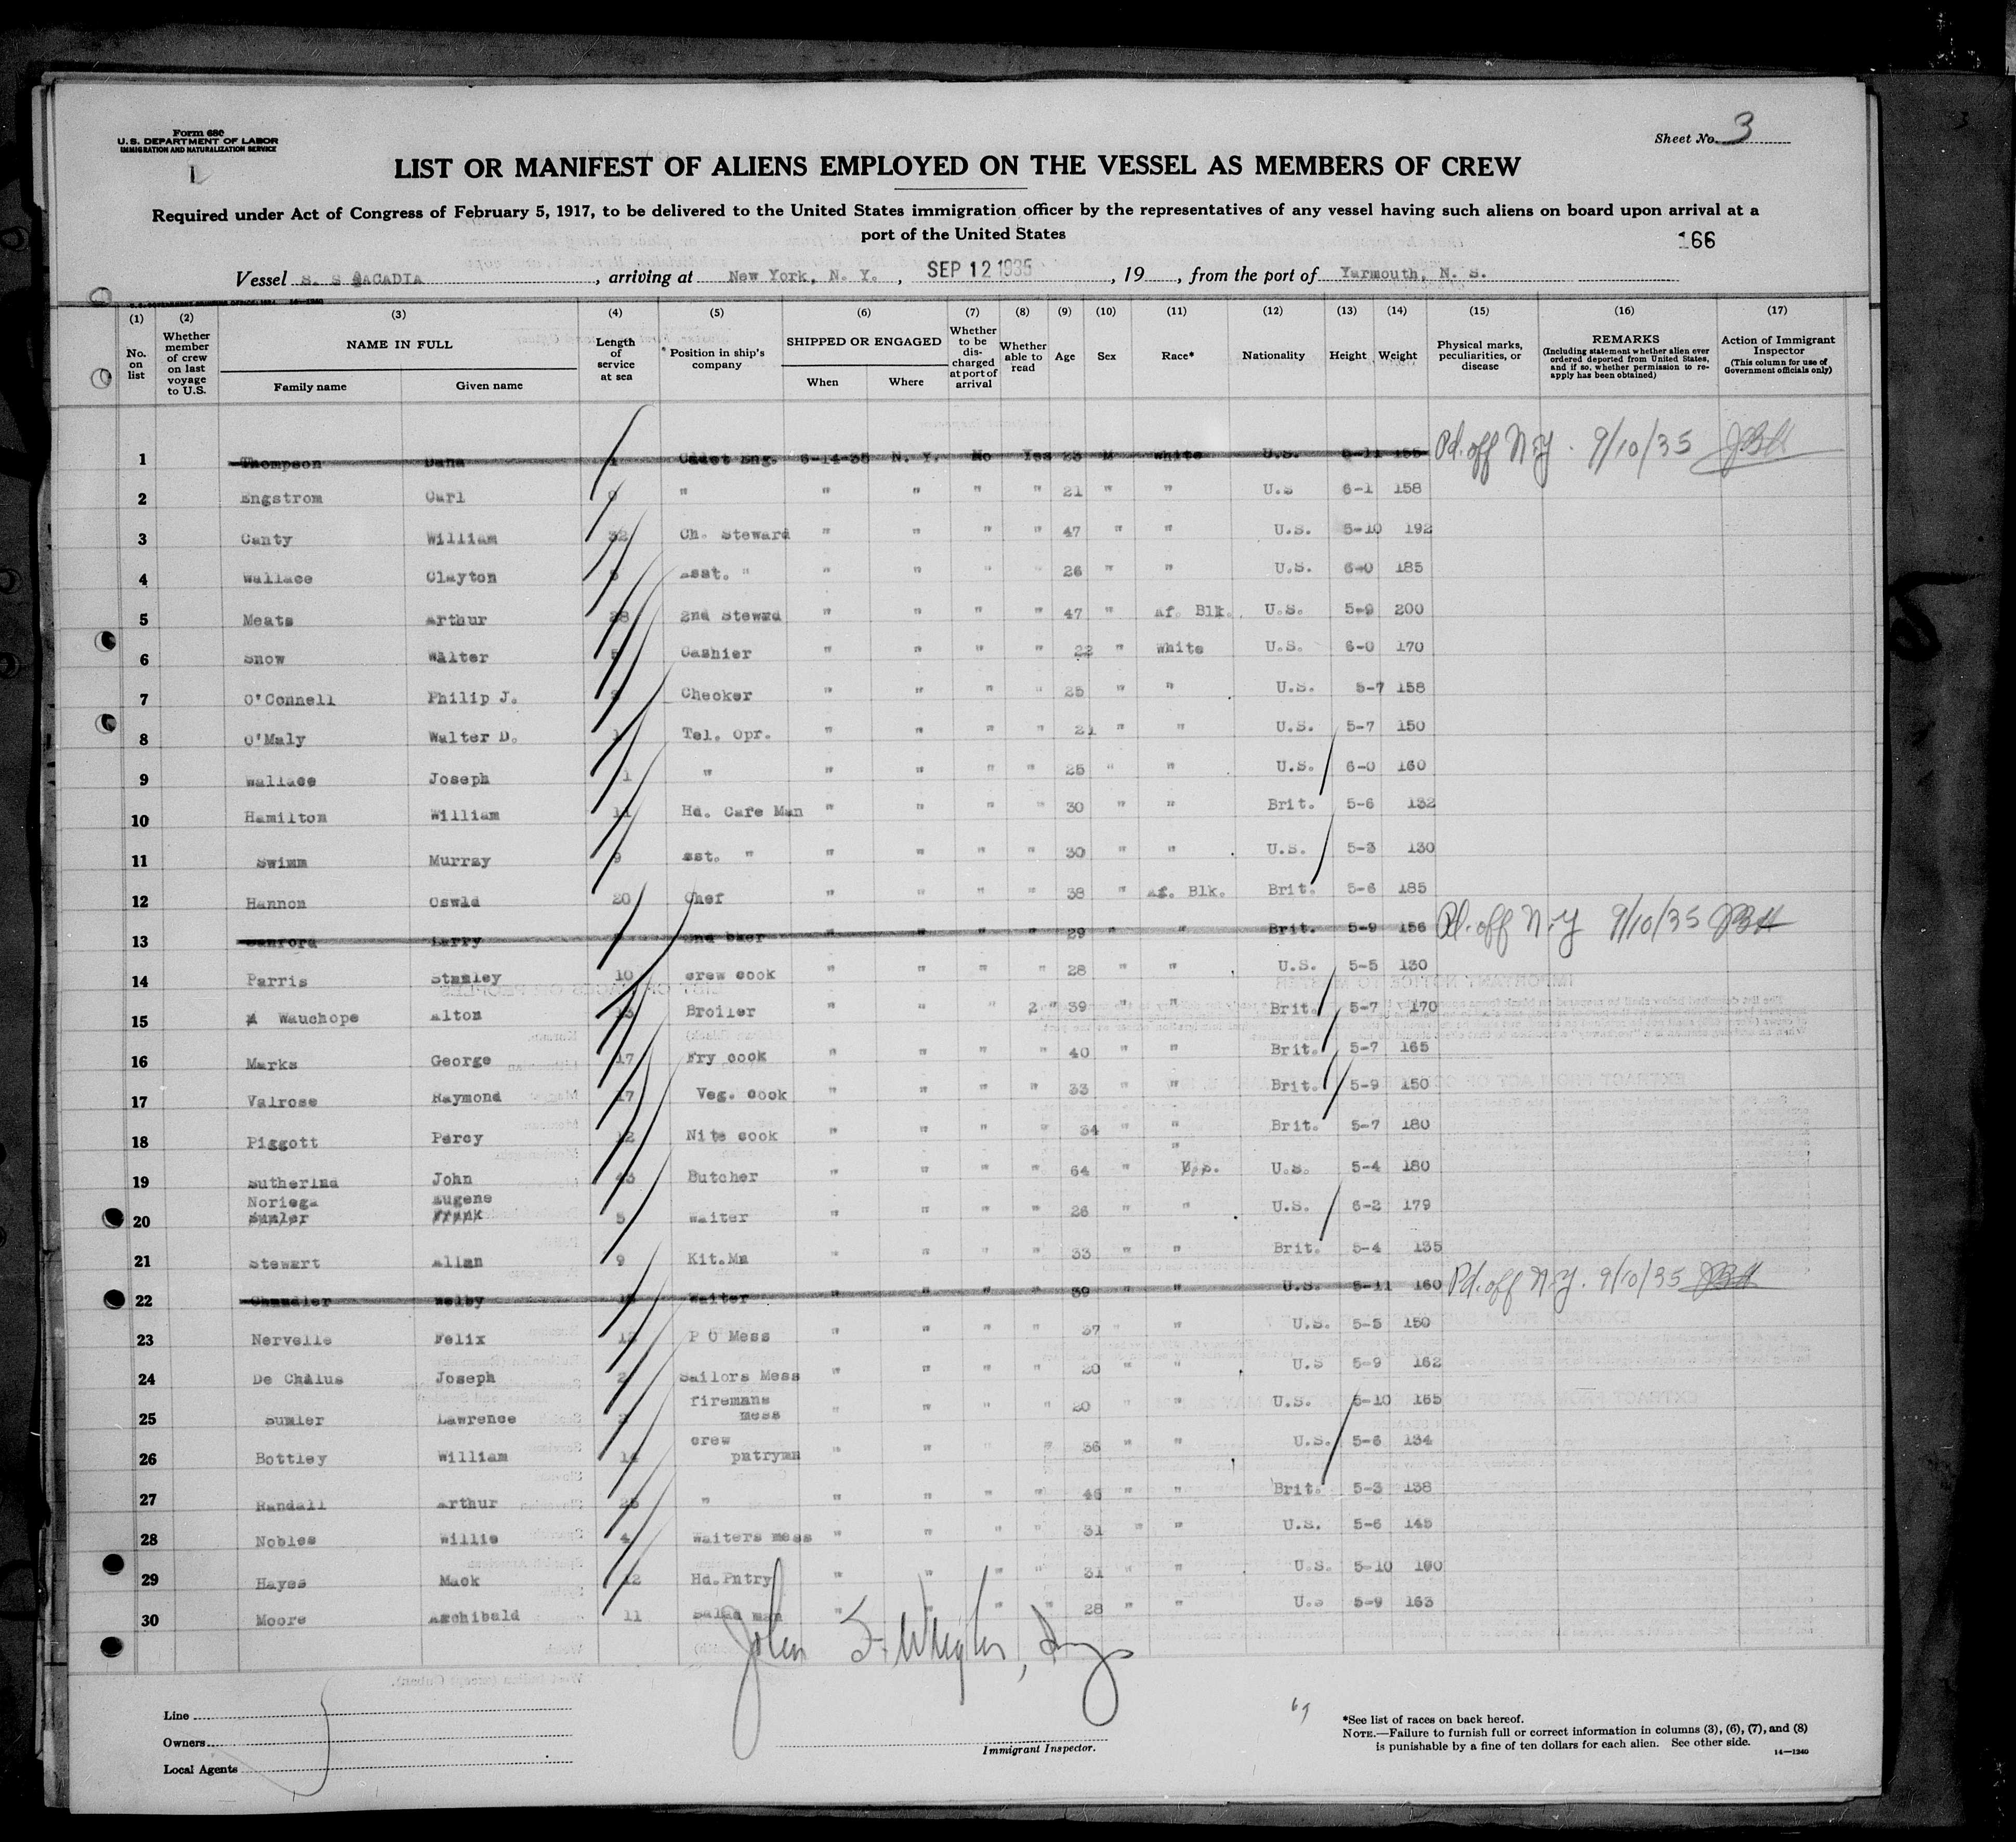 Form 680
U.S. DEPARTMENT OF LABOR
IMMIGRATION AND NATURALIZATION SERVICE
Sheet No. 3
LIST OR MANIFEST OF ALIENS EMPLOYED ON THE VESSEL AS MEMBERS OF CREW
Required under Act of Congress of February 5, 1917, to be delivered to the United States immigration officer by the representatives of any vessel having such aliens on board upon arrival at a
port of the United States
166
Vessel S. S ACADIA, arriving at New York, N. Y., SEP 12 1935, 19, from the port of Yarmouth, N. S.
(1) (2) (3) (4) (5) (6) (7) (8) (9) (10) (11) (12) (13) (14) (15) (16) (17)
No. on list
Whether member of crew on last voyage to U.S.
NAME IN FULL
Family name Given name
Length of service at sea
Position in ship's company
SHIPPED OR ENGAGED
When Where
Whether to be discharged at port of arrival
Whether able to read
Age Sex Race* Nationality Height Weight
Physical marks, peculiarities, or disease
REMARKS
(Including statement whether alien ever ordered deported from United States, and if so, whether permission to reapply has been obtained)
Action of Immigrant Inspector
(This column for use of Government officials only)
1 Thompson Dana 1 Cadet Eng. 6-14-35 N. Y. No Yes 23 M White U.S. 5-11 155 Pd. off N.Y. 9/10/35 JBH
2 Engstrom Carl 0 " " " " " 21 " " U.S 6-1 158
3 Canty William 32 Ch. Steward " " " " 47 " " U.S. 5-10 192
4 Wallace Clayton Asst. " " " " " 26 " " U.S. 6-0 185
5 Meats Arthur 28 2nd Stewrd " " " " 47 " Af. Blk. U.S. 5-9 200
6 Snow Walter 5 Cashier " " " " 22 " White U.S. 6-0 170
7 O'Connell Philip J. Checker " " " " 25 " " U.S. 5-7 158
8 O'Maly Walter D. 1 Tel. Opr. " " " " 21 " " U.S. 5-7 150
9 Wallace Joseph 1 " " " " " 25 " " U.S. 6-0 160
10 Hamilton William 11 Hd. Cafe Man " " " " 30 " " Brit. 5-6 132
11 Swimm Murray 9 Asst. " " " " " 30 " " U.S. 5-3 130
12 Hannon Oswld 20 Chef " " " " 38 " Af. Blk. Brit. 5-6 185
13 Sanford Larry 2nd baker " " " " 29 " " Brit. 5-9 156 Pd. off N.Y 9/10/35 JBH
14 Parris Stanley 10 crew cook " " " " 28 " " U.S. 5-5 130
15 Wauchope Alton 13 Broiler " " " 2 " 39 " " Brit. 5-7 170
16 Marks George 17 Fry cook " " " " 40 " " Brit. 5-7 165
17 Valrose Raymond 17 Veg. cook " " " " 33 " " Brit. 5-9 150
18 Piggott Percy 12 Nite cook " " " " 34 " " Brit. 5-7 180
19 Sutherlnd John 43 Butcher " " " " 64 " " U.S. U.S. 5-4 180
20 Noriega Eugene
Sumler Frank 5 Waiter " " " " 26 " " U.S. 6-2 179
21 Stewart Allan 9 Kit.Mn " " " " 33 " " Brit. 5-4 135
22 Chandler Welby Waiter " " " " 39 " " U.S. 5-11 160 Pd. off N.Y. 9/10/35 JBH
23 Nervelle Felix 12 P O Mess " " " " 37 " " U.S. 5-5 150
24 De Chalus Joseph 2 Sailors Mess " " " " 20 " " U.S 5-9 162
25 Sumler Lawrence firemans mess " " " " 20 " " U.S. 5-10 165
26 Bottley William 14 crew pntrymn " " " " 36 " " U.S. 5-6 134
27 Randall Arthur 25 " " " " " 46 " " Brit. 5-3 138
28 Nobles Willie 4 Waiters mess " " " " 31 " " U.S. 5-6 145
29 Hayes Mack 12 Hd.Pntry " " " " 31 " " U.S. 5-10 160
30 Moore Archibald 11 Salad man " " " " 28 " " U.S 5-9 163
Line
Owners
Local Agents
Immigrant Inspector.
*See list of races on back hereof.
NOTE.—Failure to furnish full or correct information in columns (3), (6), (7), and (8)
is punishable by a fine of ten dollars for each alien. See other side.
14—1240